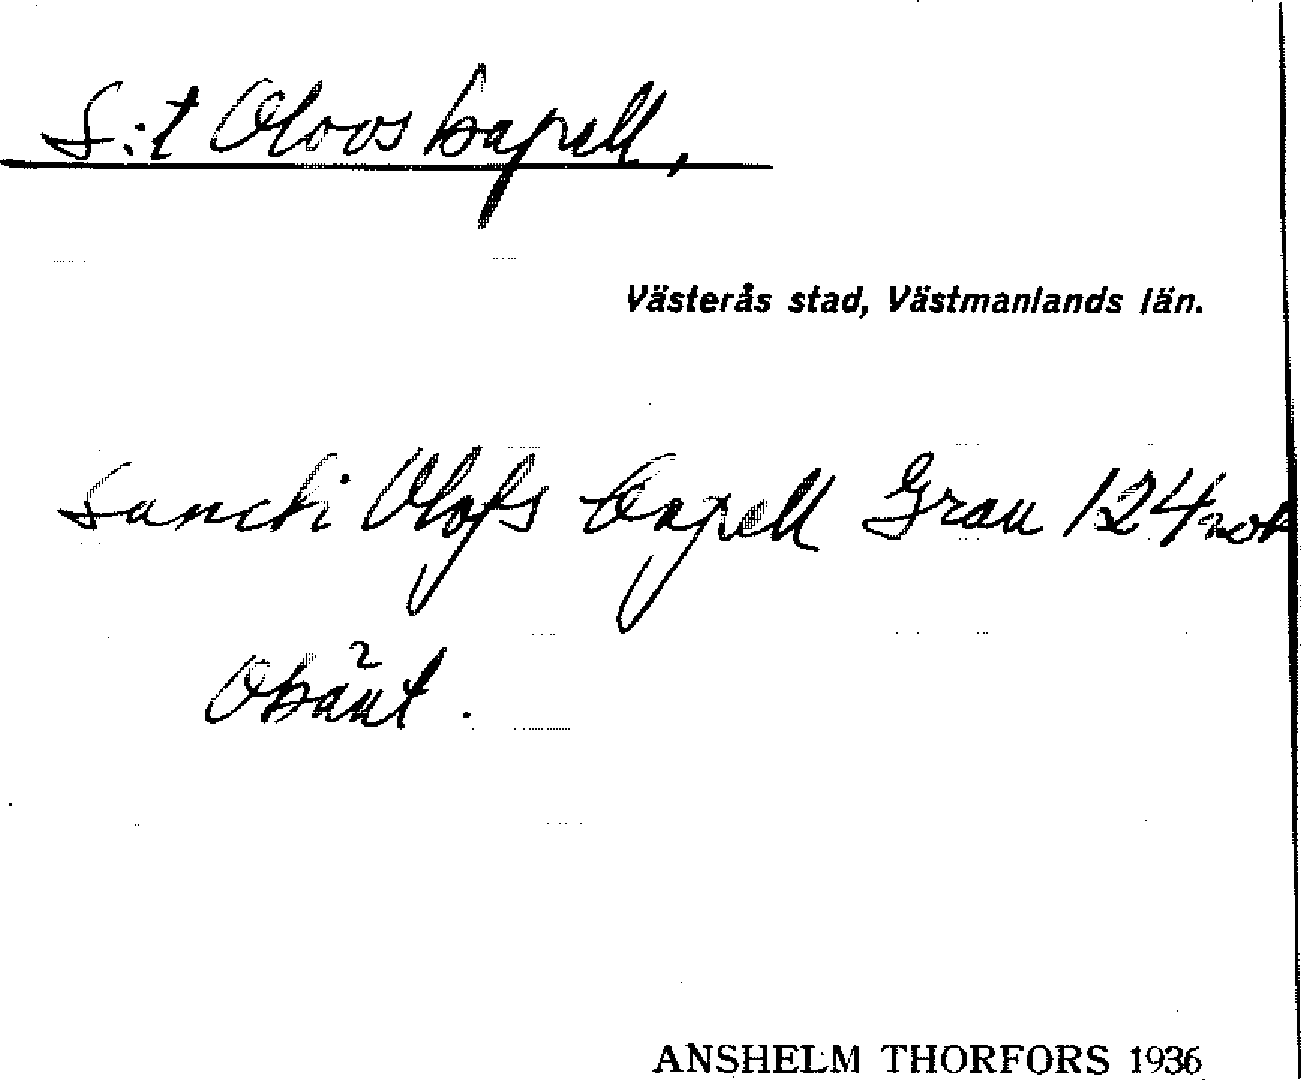 S:t Oloos kapell,
Västerås stad, Västmanlands län.
Sancti Olofs Capell Grau 124 not
Okänt.
ANSHELM THORFORS 1936